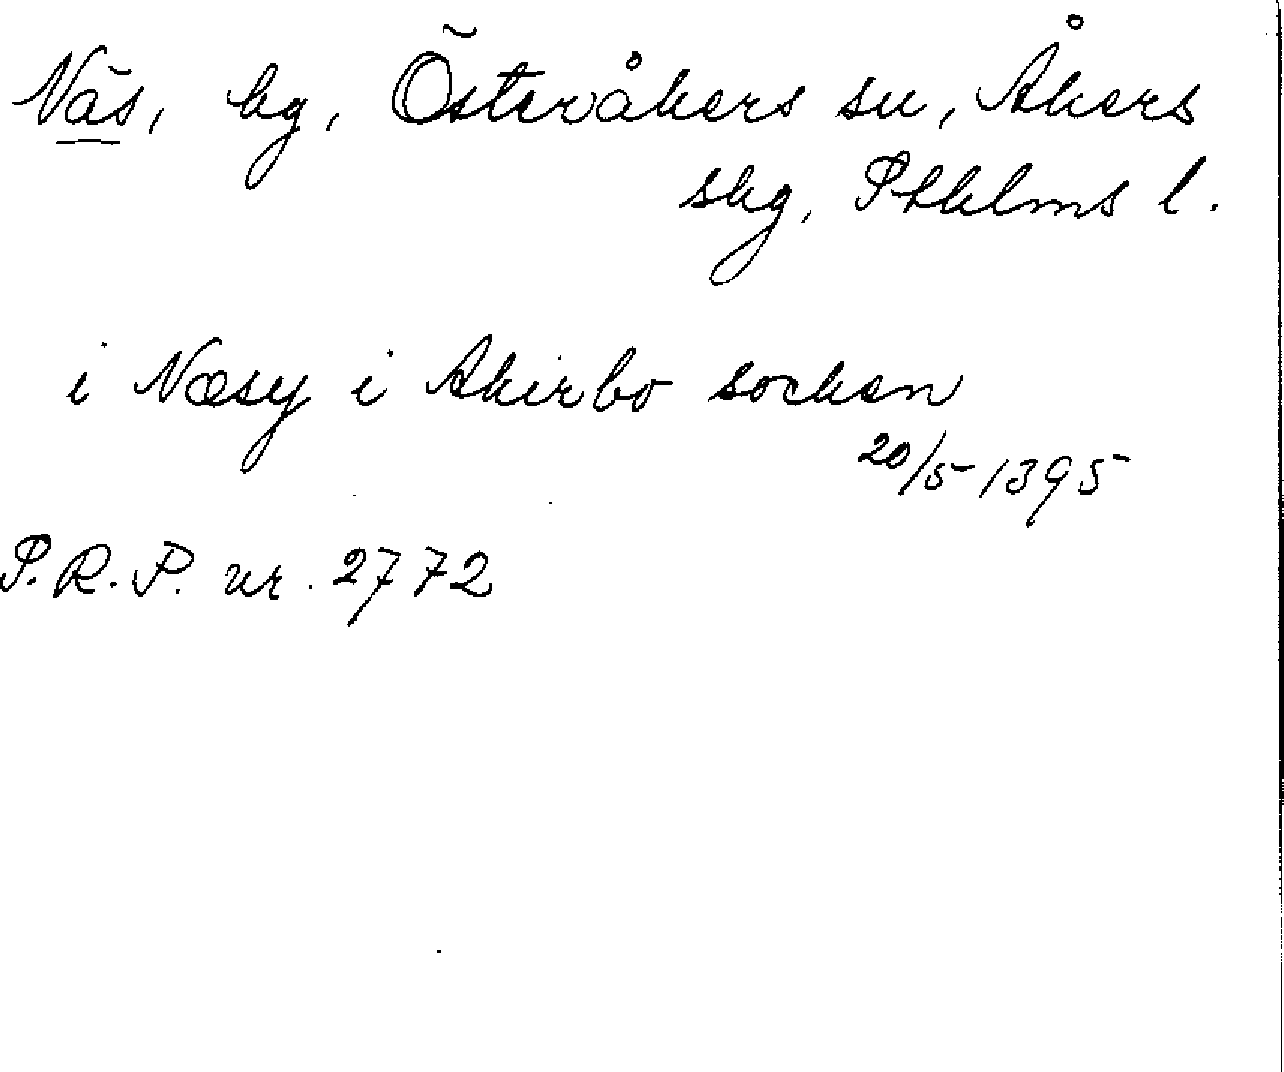 Näs, hg, Österåkers sn, Åkers
skg, Sthlms l.
i Næsy i Akirbo socken
20/5 1395
S.R.P. nr. 2772